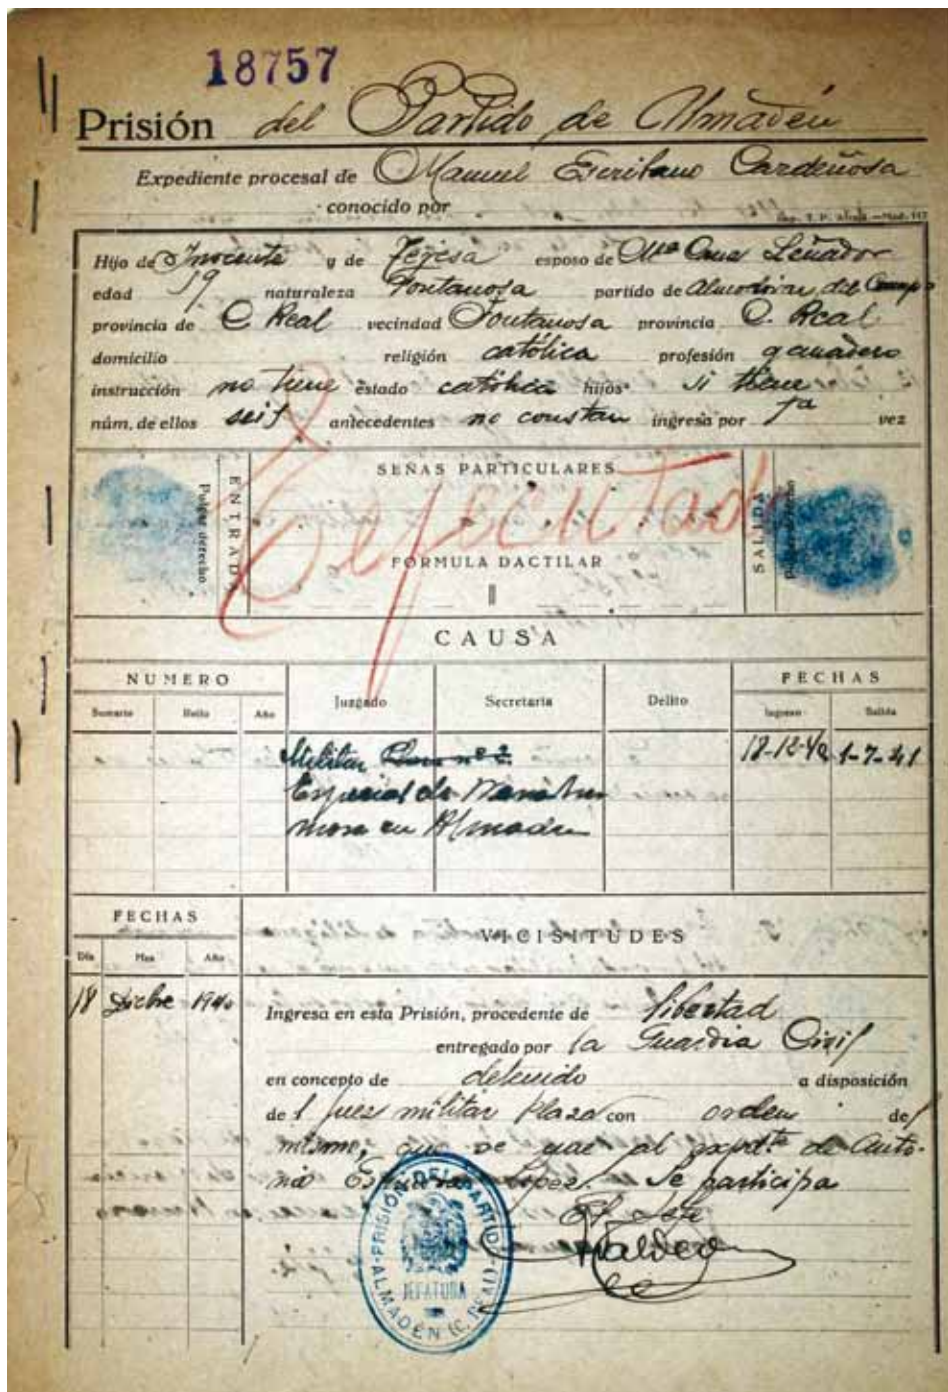 18757
Prisión del Partido de Almadén
Expediente procesal de Manuel Escribano Cardeñosa
conocido por
Hijo de Inocente y de Teresa esposo de Mª Cruz Leñador
edad 59 naturaleza Fontanosa partido de Almodóvar del Campo
provincia de C Real vecindad Fontanosa provincia C. Real
domicilio religión católica profesión ganadero
instrucción no tiene estado católica hijos si tiene
núm. de ellos seis antecedentes no constan ingresa por 1ª vez
ENTRADA
Pulgar derecho
SEÑAS PARTICULARES
Ejecutado
FÓRMULA DACTILAR
SALIDA
Pulgar derecho
CAUSA
NUMERO Juzgado Secretaría Delito FECHAS
Sumario Rollo Año Ingreso Salida
Militar Plaza nº 2 18-12-40 1-7-41
Especial de
en Almadén
FECHAS VICISITUDES
Día Mes Año
18 Dicbre 1940 Ingresa en esta Prisión, procedente de libertad
entregado por la Guardia Civil
en concepto de detenido a disposición
del juez militar Plaza con orden del
mismo, que se une al expdte de Anto-
nio López. Se participa
El Jefe
PRISIÓN DEL PARTIDO
JEFATURA
ALMADÉN (C. REAL)